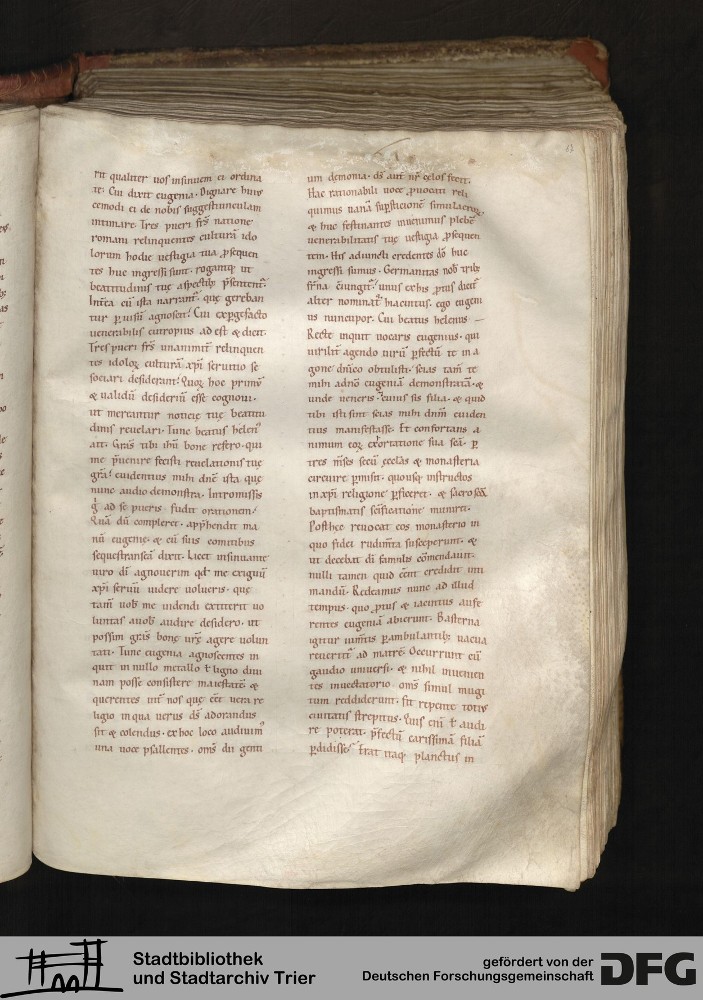 67
rit qualiter uos insinuem ei ordina
te. Cui dixit eugenia. Dignare huic
cemodi ei de nobis suggestiunculam
intimare. Tres pueri frs̄ natione
romani relinquentes culturā ido
lorum hodie uestigia tua ꝓsequen
tes huc ingressi sunt. rogantq; ut
beatitudinis tuę aspectib; p̄sententˀ.
venerabilis eutropius ad est & dicit.
Tres pueri frs̄ unanimit̄ relinquen
tes idoloꝝ culturā xp̄i seruitio se
sociari desiderant. Quoꝝ hoc primū
& ualidū desideriū esse cognoui.
ut mereantur noticię tuę beatitu
dinis reuelari. Tunc beatus helenˀ
ait. Gras̄ tibi ihū bone restro. qui
me p̄uenire fecisti reuelationis tuę
grā. euidentius mihi dn̄e ista quę
nunc audio demonstra. Intromissis
g̊ ad se pueris fudit orationem.
Quā dū compleret. app̄hendit ma
nū eugenię. & eū suis comitibus
sequestransea dixit. Licet insinuante
uiro dī agnouerim qd́ me exiguū
xp̄i seruū uidere uolueris. quę
tam̄ uob me uidendi extiterit uo
luntas auob audire desidero. ut
possim gras̄ bonę urę agere uolun
tati. Tunc eugenia agnoscentes in
quit in nullo metallo ł ligno diui
nam posse consistere maiestatē &
querentes int̄ nos quę eēt uera re
ligio in qua uerus ds̄ adorandus
sit & colendus. ex hoc loco audiuimˀ
una uoce psallentes. oms̄ dii genti
um demonia. ds̄ aut̄ nr̄ celos fecit.
Hac rationabili uoce ꝓuocati reli
quimus uanā supsticionē simulacroꝝ
& huc festinantes inuenimus plebē
uenerabilitatis tuę uestigia ꝓsequen
tem. His adiuncti credentes dō huc
ingressi sumus. Germanitas nob̄ trib;
alter nominatˀ hiacintus. ego eugeni
us nuncupor. Cui beatus helenus
Recte inquit uocaris eugenius. qui
uirilit̄ agendo uirū p̄fectū te in a
gone dn̄ico obtulisti. scias tam̄ te
mihi adnō eugeniā demonstratā. &
unde ueneris. cuius sis filia. & quid
tibi isti sint scias mihi dnm̄ euiden
tius manifestasse. Et confortans a
nimum eoꝝ exortatione sua sc̄a. p̄
tres m̄ses secū ecc̄las & monasteria
circuire p̄misit. quousq; instructos
in xp̄i religione p̄ficeret. & sacrosc̄ā
baptismatis sc̄ificatione muniret.
Posthęc reuocat eos monasterio in
quo fidei rudim̄ta susceperunt. &
ut decebat dī famulis cōmendauit.
nulli tamen quid eēnt credidit inti
mandū. Redeamus nunc ad illud
tempus. quo ꝓtus & iacintus aufe
rentes eugeniā abierunt. Basterna
igitur uirn̄tis p̄ambulantib; uacua
reuertitˀ ad matrē. Occurrunt eū
gaudio uniuersi. & nihil inuenien
tes inuectatorio. oms̄ simul mugi
tum reddiderunt. fit repente totiˀ
ciuitatis strepitus. Quis enī ł audi
re poterat. p̄fectū carissimā filiā
p̄didisse. Erat itaq; planctus in
Stadtbibliothek
und Stadtarchiv Trier
gefördert von der
Deutschen Forschungsgemeinschaft
DFG